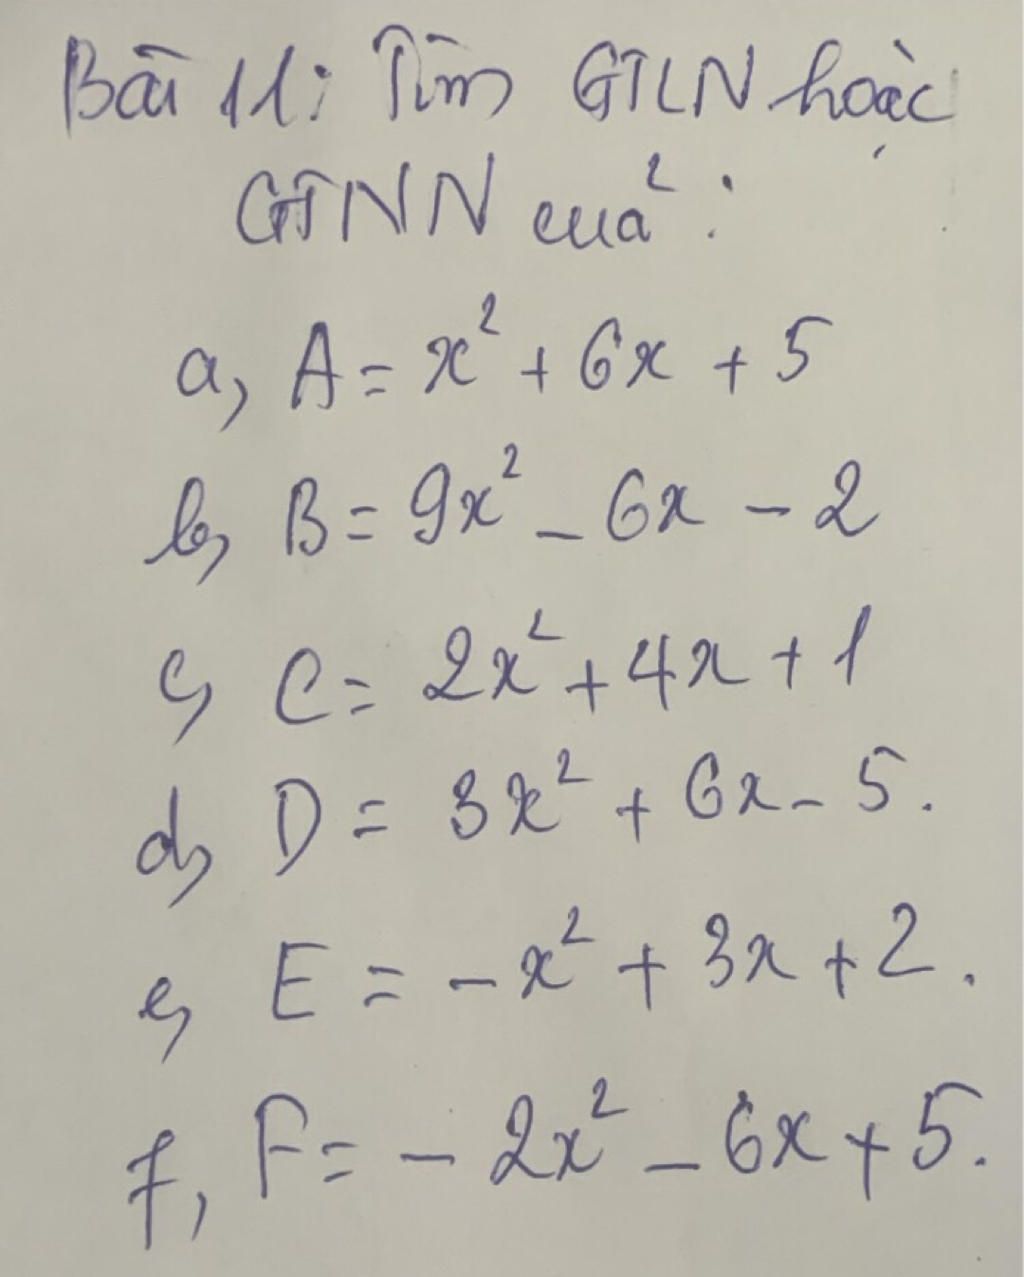 Bài 11: Tìm GTLN hoặc
GTNN của:
a, A = x² + 6x + 5
b, B = 9x² - 6x - 2
c, C = 2x² + 4x + 1
d, D = 3x² + 6x - 5.
e, E = -x² + 3x + 2.
f, F = - 2x² - 6x + 5.